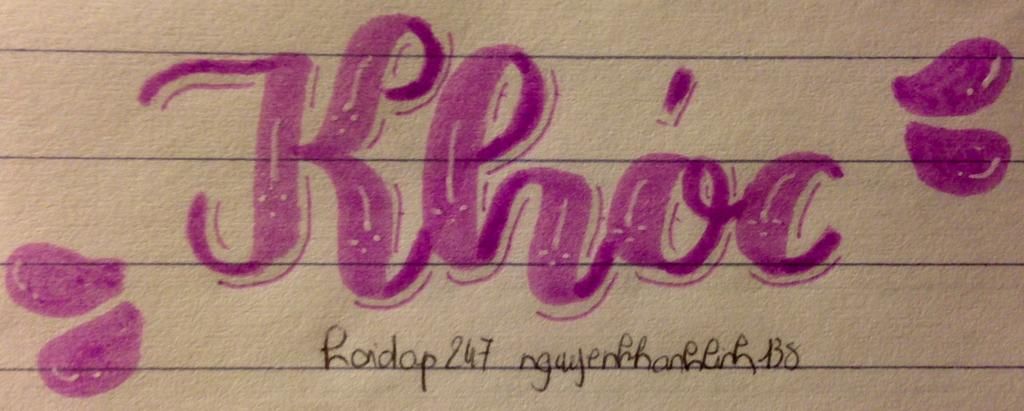 Khóc
hoidap 247 nguyenkhanhlinh138